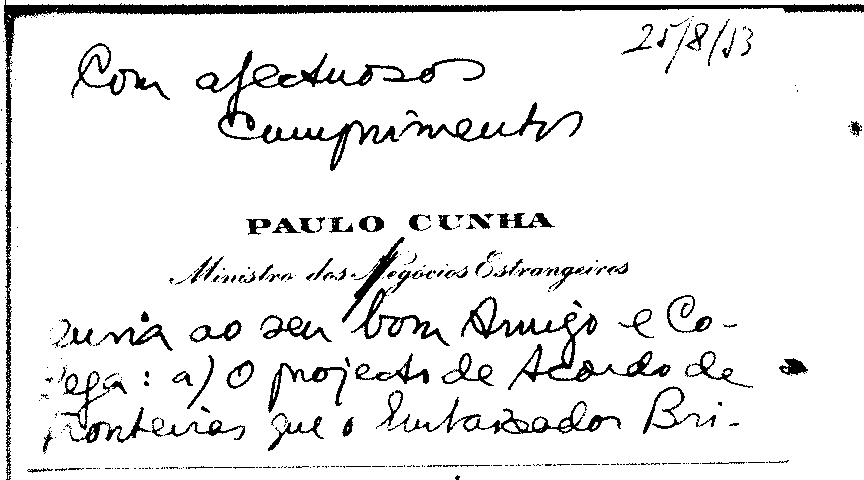 25/8/53
Com afectuosos
cumprimentos
PAULO CUNHA
Ministro dos Negócios Estrangeiros
envia ao seu bom Amigo e Co-
lega: a) O projecto de Acordo de
fronteiras que o Embaixador Bri-